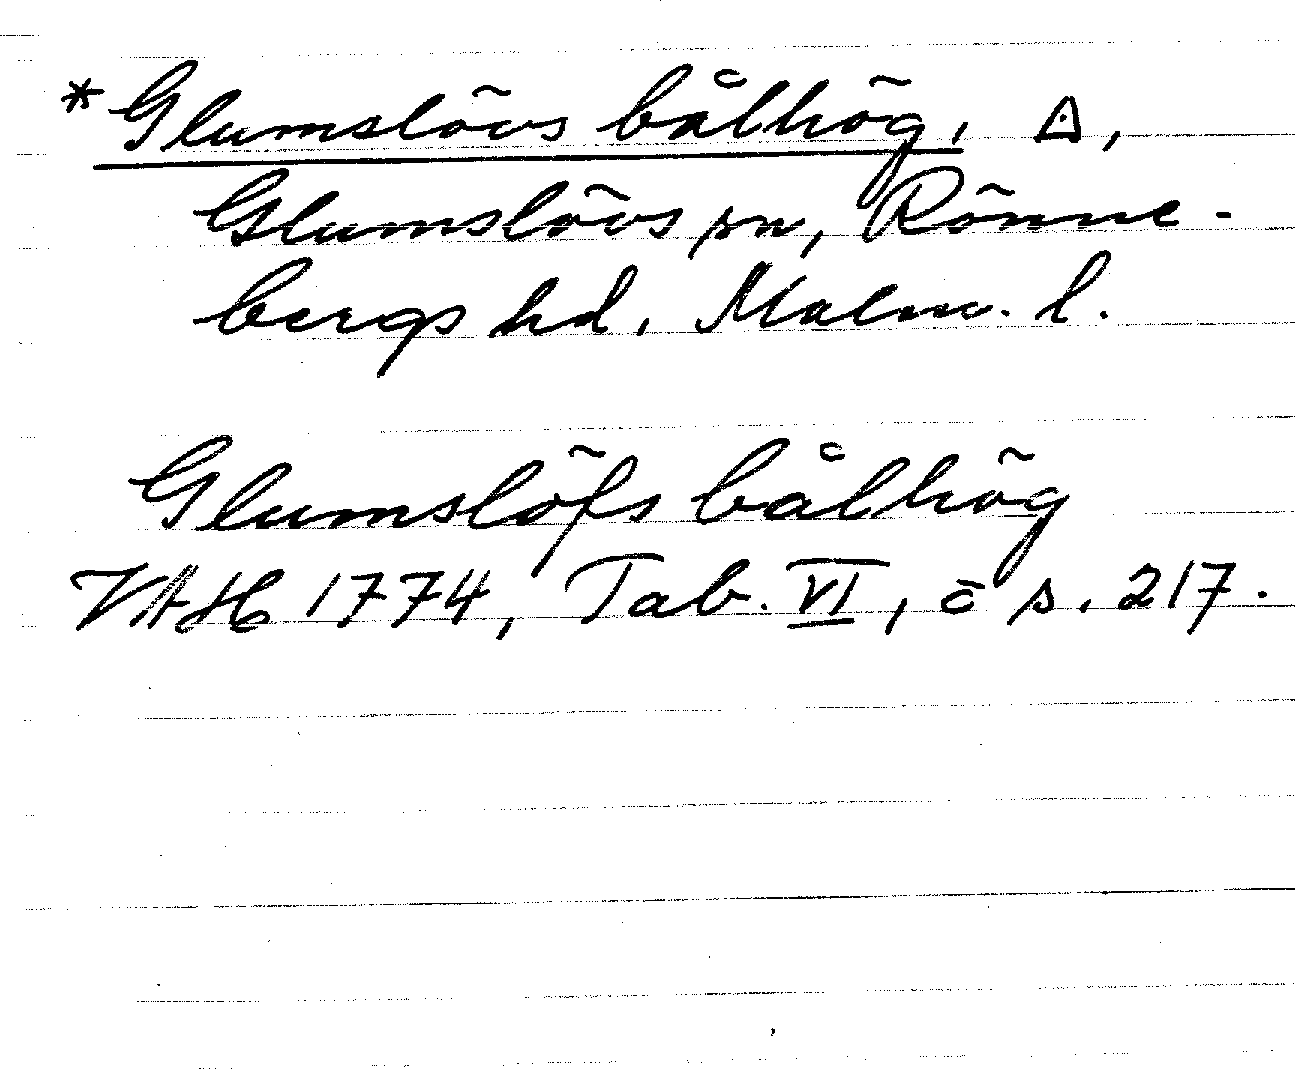 *Glumslövs bålhög, △,
Glumslövs sn, Rönne-
bergs hd, Malm. l.
Glumslöfs bålhög
VAH 1774, Tab. VI, c̄ s. 217.